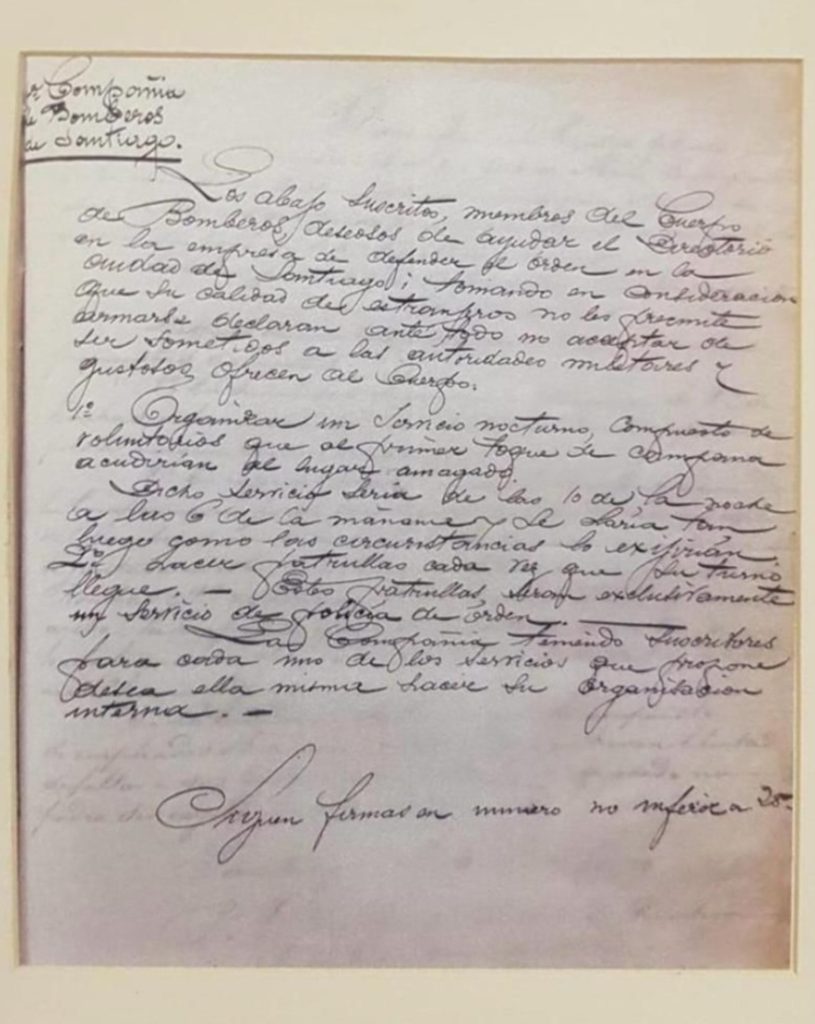 Compañia
de Bomberos
de Santiago.
Los abajo suscritos, miembros del Cuerpo
de Bomberos, deseosos de ayudar el Directorio
en la empresa de defender el órden en la
ciudad de Santiago i tomando en consideracion
que su calidad de estranjeros no les permite
armarse declaran ante todo no aceptar de
ser sometidos a las autoridades militares y
gustosos ofrecen al Cuerpo.
1º Organizar un servicio nocturno, compuesto de
voluntarios que al primer toque de campana
acudirian al lugar amagado.
Dicho servicio seria de las 10 de la noche
a las 6 de la mañana y se haria tan
luego como las circunstancias lo exijirian.
2º Hacer patrullas cada vez que su turno
llegue. — Estas patrullas, seran exclusivamente
un servicio de policia de órden. —
La Compañia teniendo suscritores
para cada uno de los servicios que propone
desea ella misma hacer su organisacion
interna. —
Siguen firmas en numero no inferior a 25.